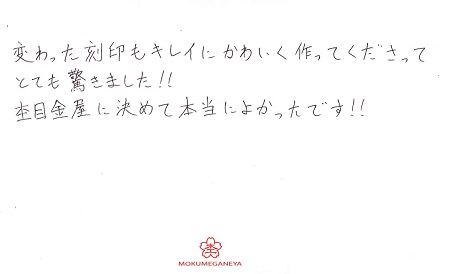 変わった刻印もキレイにかわいく作ってくださって
とても驚きました!!
杢目金屋に決めて本当によかったです!!
MOKUMEGANEYA